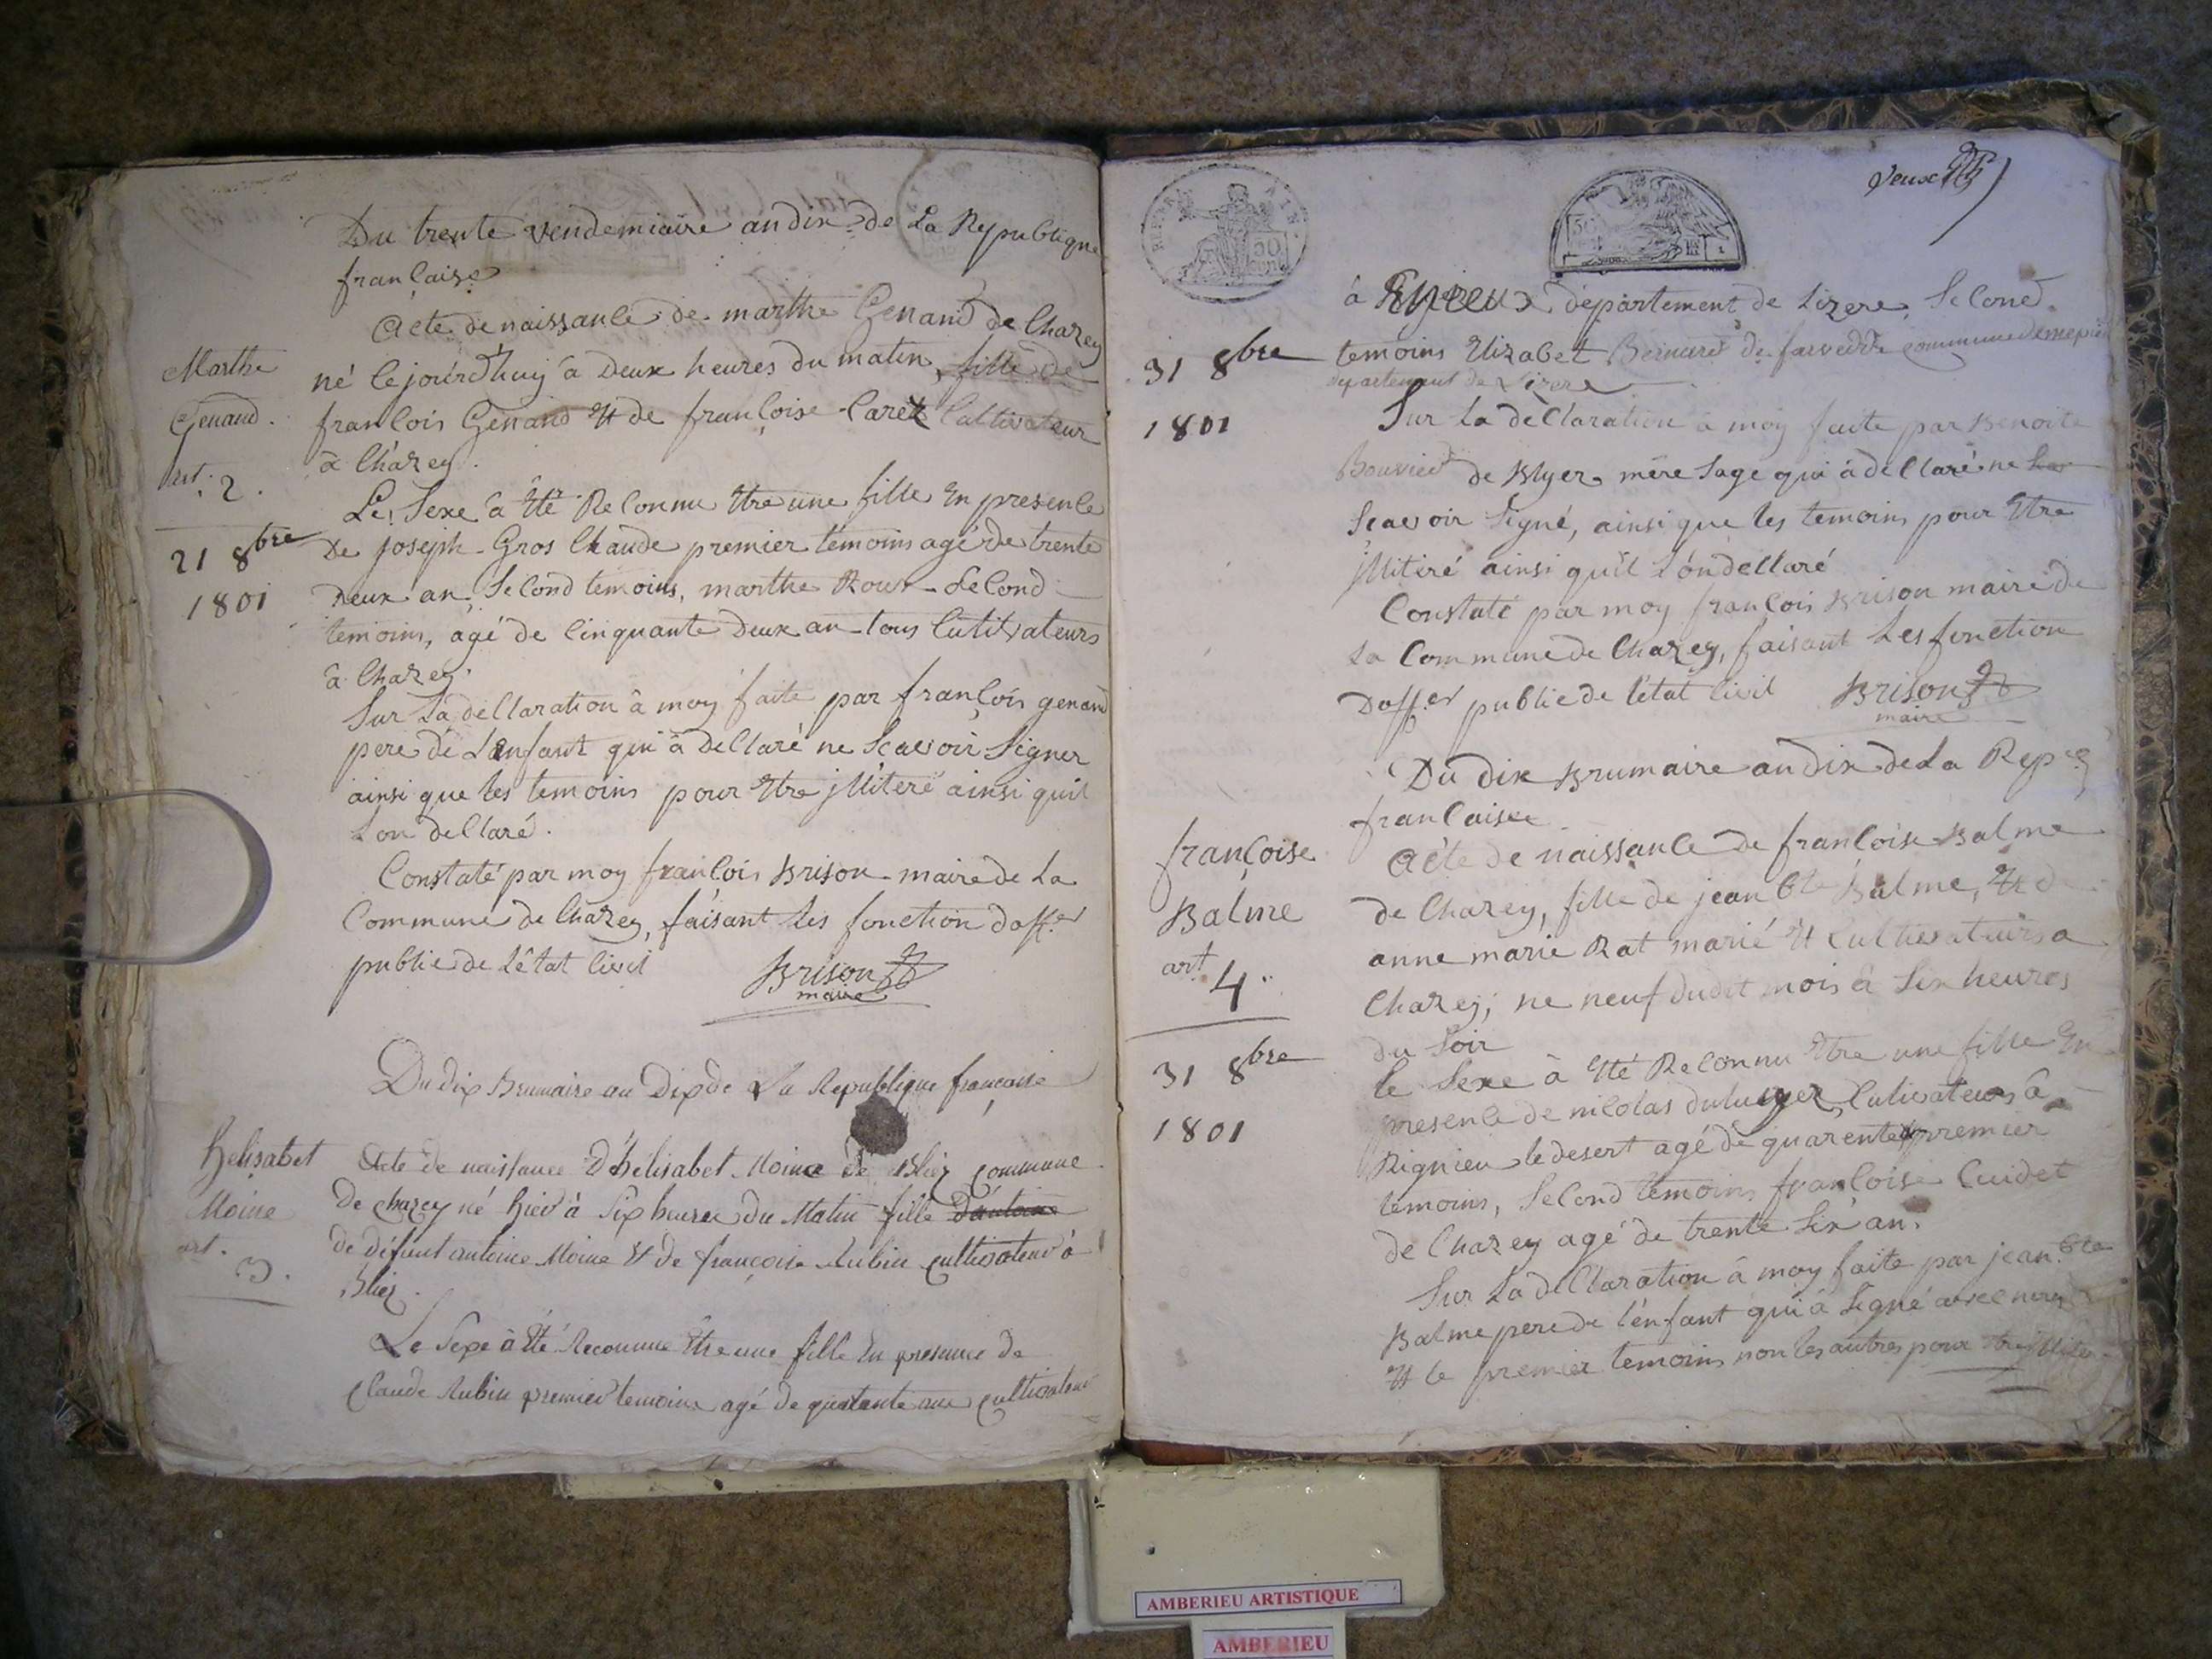 Du trente vendemiaire an dix de La Republique
française
Acte de naissance de marthe Genand de Chazey
né le jourd'huy à Deux heures du matin, fille de
françois Genand et de françoise Caret Cultivateur
à Chazey.
Le Sexe à été Reconnu être une fille en presence
De joseph Gros Claude premier temoins agé de trente
Deux an, Second temoins, marthe Roux Second
temoins, agé de Cinquante Deux an tous Cultivateurs
à Chazey.
Sur La déclaration à moy faite par françois genand
pere de L'enfant qui à Déclaré ne Scavoir Signer
ainsi que les temoins pour être jllitéré ainsi quil
L'on declaré.
Constaté par moy françois Brison maire de La
Commune de Chazey, faisant les fonction d'off.er
public de L'état civil
Brison
maire
Du dix Brumaire an Dix de La Republique française
Acte de naissance D'hélisabet Moine de Bliez commune
de Chazey né hier à Six heures Du Matin fille D'antoine
de défunt antoine Moine et de françoise Aubin cultivateur à
Bliez.
Le Sexe à été Reconnue être une fille En presence de
Claude Aubin premier temoins agé de quarante ans cultivateur
Marthe
Genand.
art. 2.
21 8bre
1801
helisabet
Moine
art.
3.
REP. FRA
50
cent
deux
à département de Lizere, Second
temoins Elizabet Bernard de commune de
departement de Lizere
Sur La déclaration à moy faite par Benoite
Bouvier de Blyer mère Sage qui à déclaré ne
Scavoir Signé, ainsi que les temoins pour être
jllitéré ainsi qu'il L'on declaré
Constaté par moy françois Brison maire de
La Commune de Chazey, faisant Les fonction
D'off.er public de L'état Civil
Brison
maire
Du dix Brumaire an dix de La Rep.e
francaise
Acte de naissance de francoise Balme
de Chazey, fille de jean Bte Balme, et de
anne marie Rat marié et Cultivateurs a
Chazey; ne neuf dudit mois à Six heures
du Soir
le Sexe à été Reconnu être une fille En
presence de nicolas Cultivateurs à
Rignieu le desert agé de quarente premier
temoins, Second temoins françoise Cuidet
de Chazey agé de trente Six an.
Sur La déClaration à moy faite par jean Bte
Balme pere de l'énfant qui à Signé avec nous
et le premier temoins non les autres pour être
31 8bre
1801
françoise
Balme
art.
4.
31 8bre
1801
AMBERIEU ARTISTIQUE
AMBERIEU